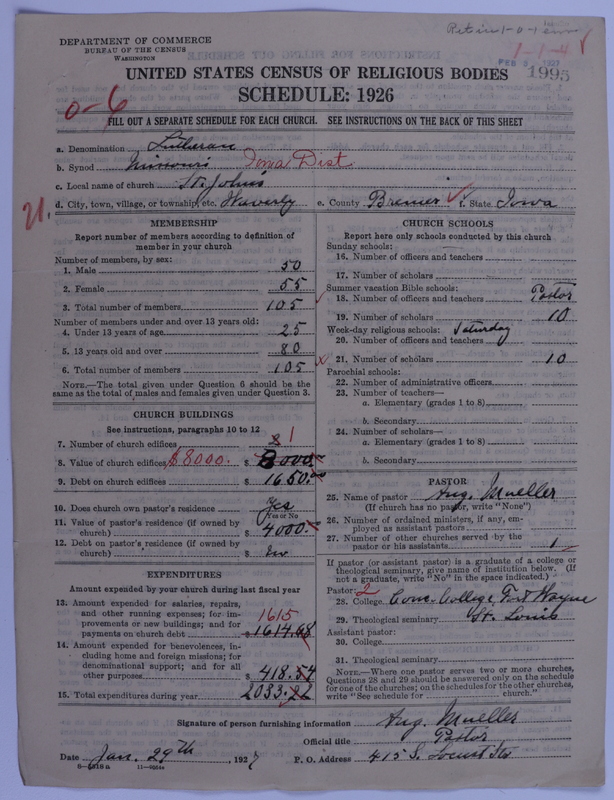 DEPARTMENT OF COMMERCE
BUREAU OF THE CENSUS
WASHINGTON
1-1-4
FEB 3 1927
1995
UNITED STATES CENSUS OF RELIGIOUS BODIES
SCHEDULE: 1926
0-6
FILL OUT A SEPARATE SCHEDULE FOR EACH CHURCH. SEE INSTRUCTIONS ON THE BACK OF THIS SHEET
a. Denomination Lutheran
b. Synod Missouri Iowa Dist
c. Local name of church St. John's
d. City, town, village, or township, etc. Waverly e. County Bremer f. State Iowa
21.
MEMBERSHIP
Report number of members according to definition of
member in your church
Number of members, by sex:
1. Male 50
2. Female 55
3. Total number of members 105
Number of members under and over 13 years old:
4. Under 13 years of age 25
5. 13 years old and over 80
6. Total number of members 105
NOTE.—The total given under Question 6 should be the
same as the total of males and females given under Question 3.
CHURCH BUILDINGS
See instructions, paragraphs 10 to 12
7. Number of church edifices 1
8. Value of church edifices $8000. $ 8000.00
9. Debt on church edifices $ 1650.00
10. Does church own pastor's residence? Yes
Yes or No
11. Value of pastor's residence (if owned by
church) $ 4000.
12. Debt on pastor's residence (if owned by
church) $
EXPENDITURES
Amount expended by church during last fiscal year
13. Amount expended for salaries, repairs,
and other running expenses; for im-
provements or new buildings; and for 1615
payments on church debt $ 1614.68
14. Amount expended for benevolences, in-
cluding home and foreign missions; for
denominational support; and for all
other purposes $ 418.54
15. Total expenditures during year 2033.22
CHURCH SCHOOLS
Report here only schools conducted by this church
Sunday schools:
16. Number of officers and teachers
17. Number of scholars
Summer vacation Bible schools:
18. Number of officers and teachers Pastor
19. Number of scholars 10
Week-day religious schools: Saturday
20. Number of officers and teachers
21. Number of scholars 10
Parochial schools:
22. Number of administrative officers
23. Number of teachers—
a. Elementary (grades 1 to 8)
b. Secondary
24. Number of scholars—
a. Elementary (grades 1 to 8)
b. Secondary
PASTOR
25. Name of pastor Aug. Mueller
(If church has no pastor, write "None")
26. Number of ordained ministers, if any, em-
ployed as assistant pastors
27. Number of other churches served by the
pastor or his assistants 1
If pastor (or assistant pastor) is a graduate of a college or
theological seminary, give name of institution below. (If
not a graduate, write "No" in the space indicated.)
Pastor: 2
28. College Conc. College, Fort Wayne
29. Theological seminary St. Louis
Assistant pastor:
30. College
31. Theological seminary
NOTE.—Where one pastor serves two or more churches,
Questions 28 and 29 should be answered only on the schedule
for one of the churches; on the schedules for the other churches,
write "See schedule for church."
Signature of person furnishing information Aug. Mueller
Official title Pastor
Date Jan. 29th, 1927 P. O. Address 415 S. Locust St.
8—6818a 11—9054a